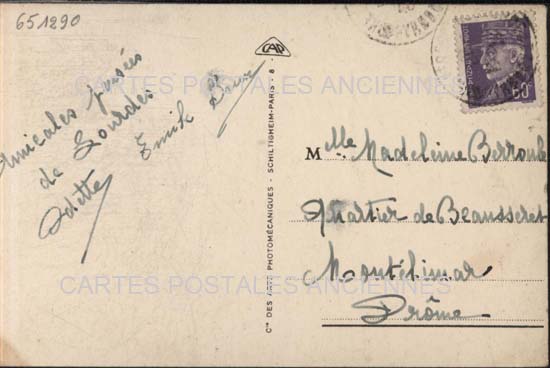 651290
Amicales pensées
de Lourdes
Odette
Emile
CAP
Cie DES ARTS PHOTOMÉCANIQUES - SCHILTIGHEIM-PARIS - 8 -
60c
Mlle Madeleine
Quartier de Beausseret
Montélimar
Drôme
CARTES POSTALES ANCIENNES
CARTES POSTALES ANCIENNES